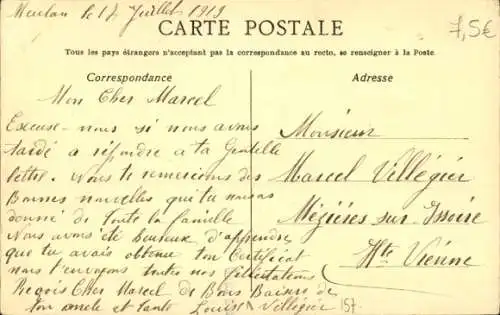 Meulan le 17 Juillet 1913
7,5€
CARTE POSTALE
Tous les pays étrangers n'acceptant pas la correspondance au recto, se renseigner à la Poste.
Correspondance
Adresse
Mon Cher Marcel
Excuse-nous si nous avons
tardé a répondre a ta Gentille
lettre. Nous te remercions des
Bonnes nouvelles que tu nous
donné de toute la famille
Nous avons été heureux d'apprendre
que tu avais obtenu ton Certificat
nous t'envoyons toutes nos félicitations
Reçois Cher Marcel de Bons Baisers de
ton oncle et tante Louise Villégier
Monsieur
Marcel Villégier
Mézières sur Issoire
Hte Vienne
157